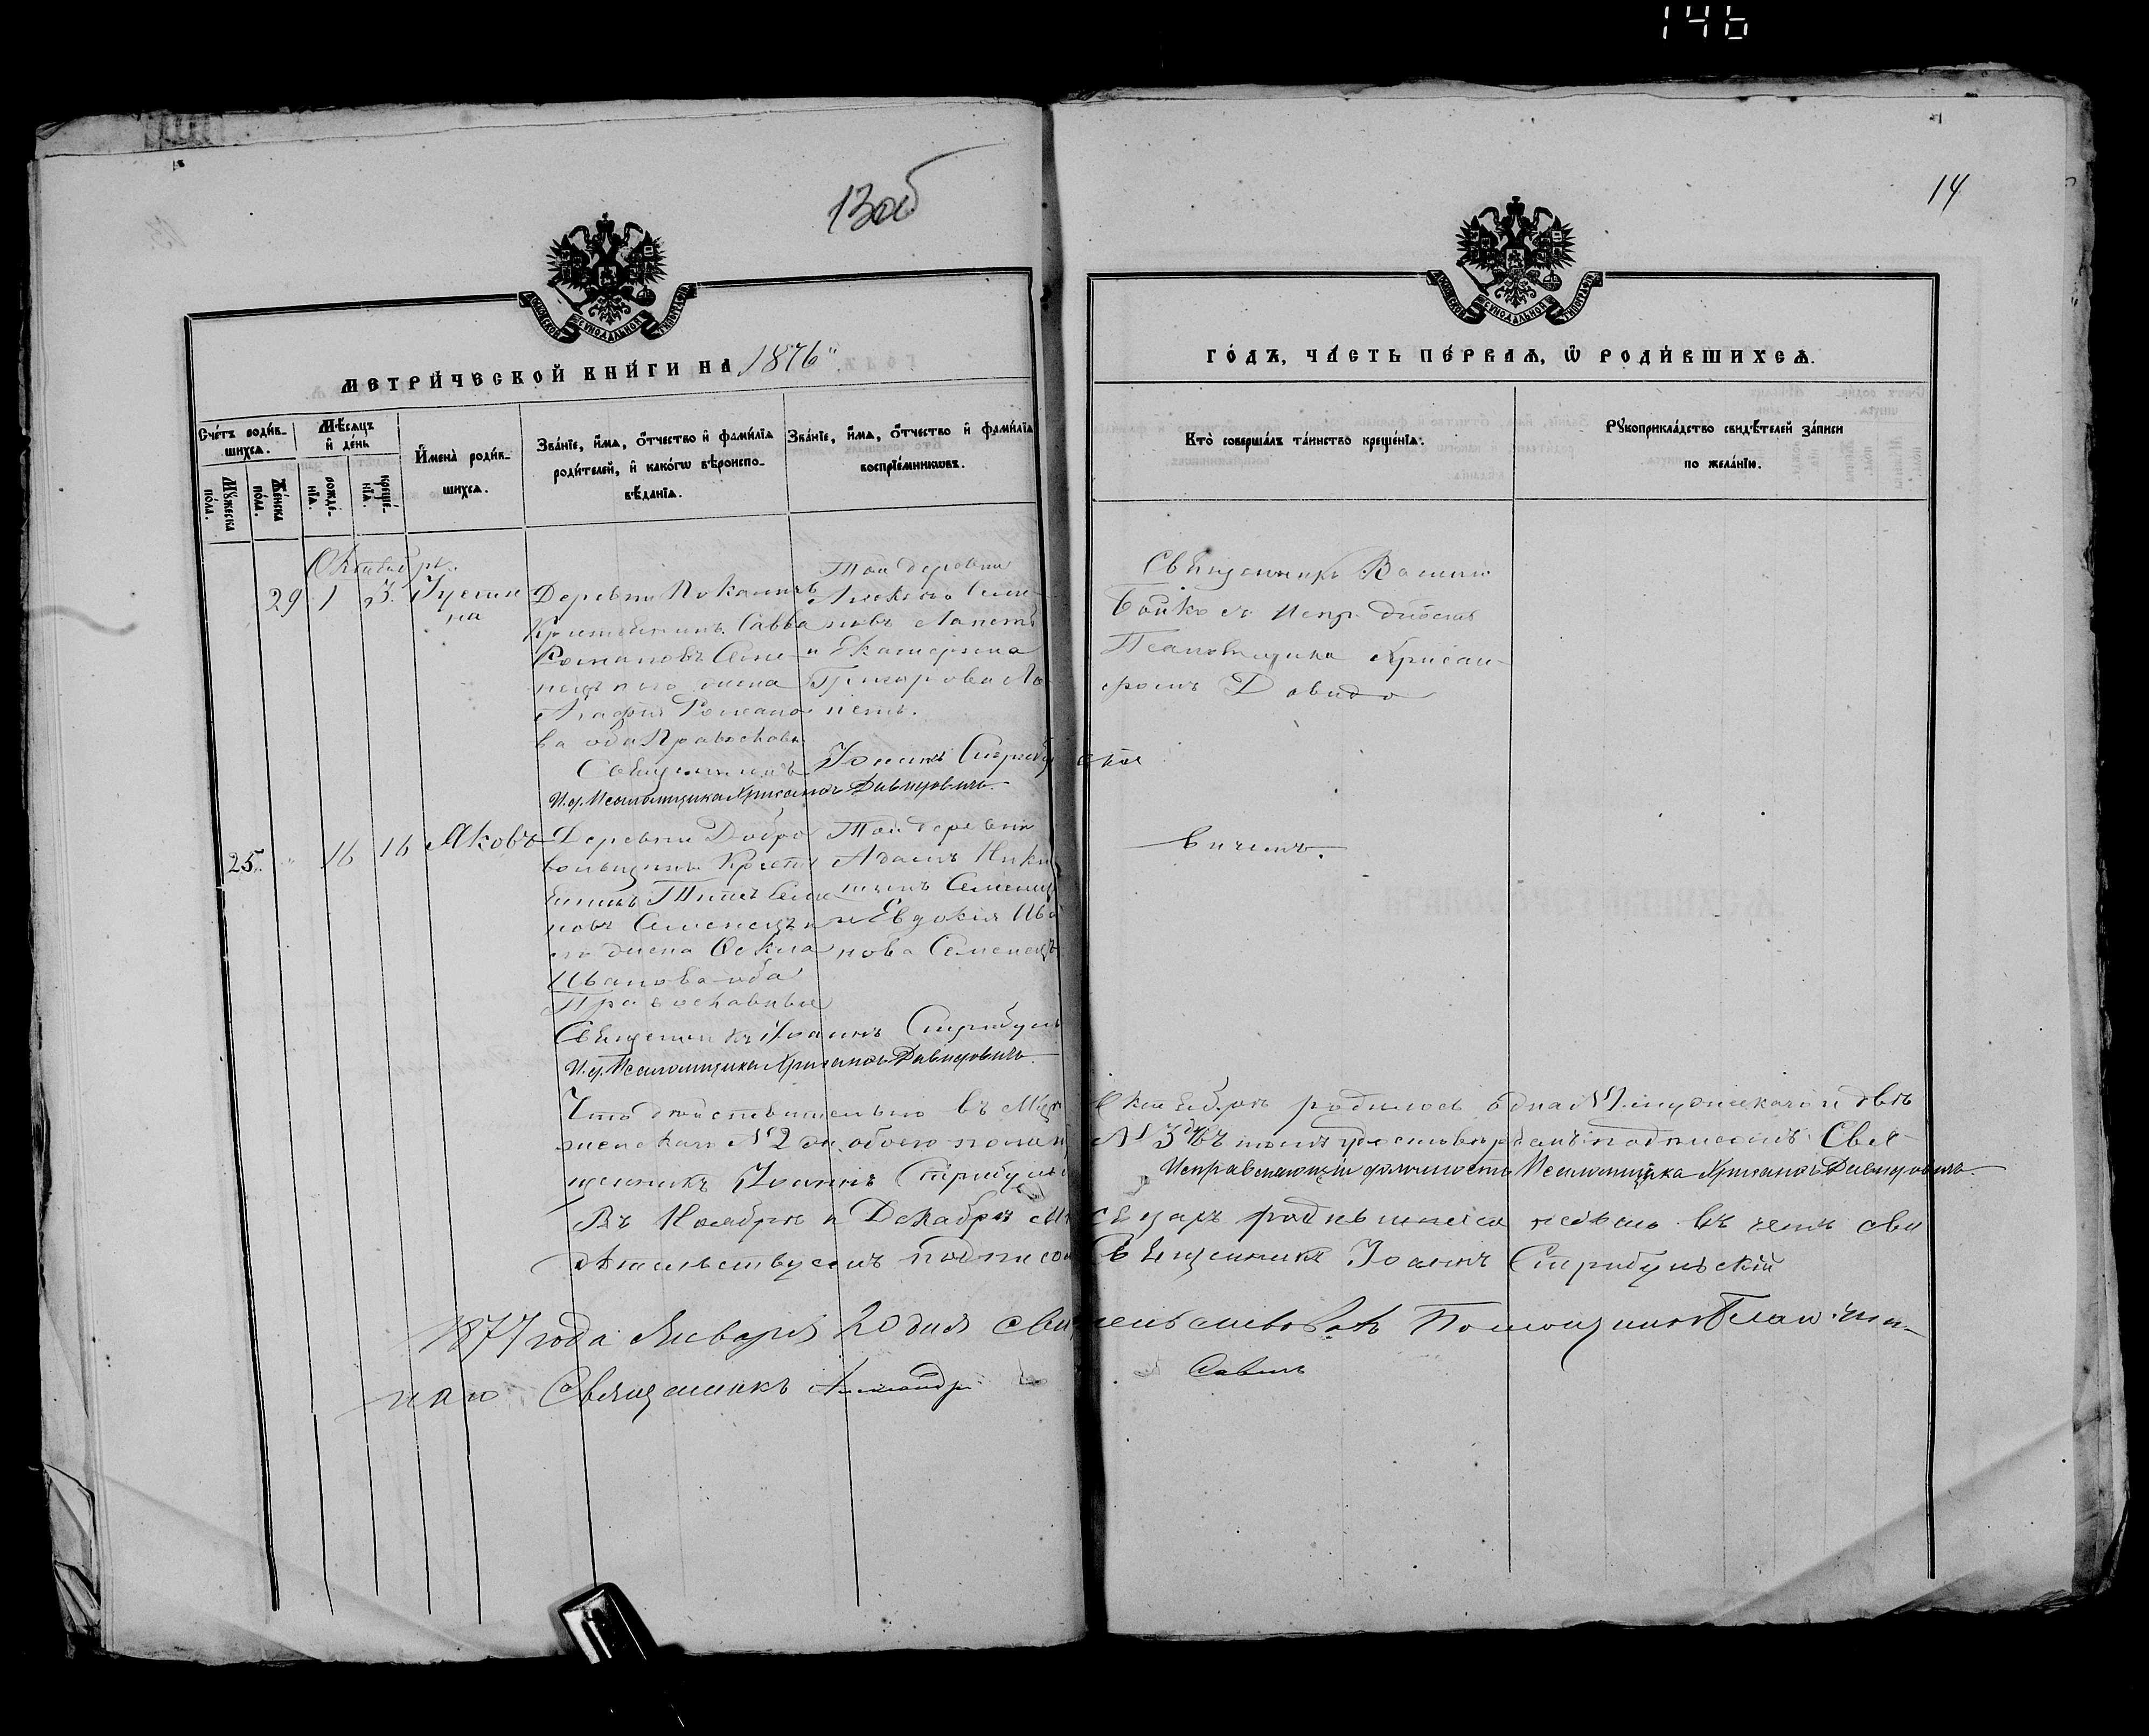 146
13об
14
МЕТРИ́ЧЕСКОЙ КНИ́ГИ НА 1876
ГО́ДЪ, ЧА́СТЬ ПЕ́РВАѦ, Ѿ РОДИ́ВШИХСѦ.
Сче́тъ роди́в-
шихсѧ.
Мѣ́сѧцъ
и҆ де́нь
Му́жеска
по́ла.
Же́нска
по́ла.
рожде́-
нїѧ.
креще́-
нїѧ.
И҆мена̀ роди́в-
шихсѧ.
Зва́нїе, и҆́мѧ, о҆́тчество и҆ фами́лїѧ
роди́телей, и҆ како́гѡ вѣ́роиспо-
вѣ́данїѧ.
Зва́нїе, и҆́мѧ, о҆́тчество и҆ фами́лїѧ
воспрїе́мникѡвъ.
Кто̀ соверша́лъ та́инство креще́нїѧ.
Рꙋкоприкла́дство свидѣ́телей за́писи
по жела́нїю.
Октябрь
29 1 3. Іустин
на
Деревни
Крестьянинъ Савва
Романовъ Семе-
нецъ и его жена
Агафія Романо
ва оба Православн
Той деревни
Семе
новъ Лапет
и Екатерина
Григорова Ла
петъ.
Священникъ Василій
Бойко съ Испр. должность
Псаломщика Хрисан-
фомъ Давидо
Священникъ Іоаннъ Стрибульскій
И. д. Псаломщика Хрисанфъ Давидовичъ
25. " 16 16 Яковъ
Деревни Добро
вольщинъ Крестья
янинъ Титъ Семе
новъ Семенецъ и
его жена Ѳекла
Иванова оба
Православные
Той деревни
Адамъ Ники
тинъ Семенец
и Евдокія Ива
нова Семенецъ
вичемъ.
Священникъ Іоаннъ Стрибуль
И. д. Псаломщика Хрисанфъ Давидовичъ
Что действительно въ
родилось
женскаго № 2 обоего пола
№ 3 въ томъ удостоверяемъ подписомъ Свя-
щенникъ Іоаннъ Стрибульскій
Исправляющій должность Псаломщика Хрисанфъ Давидовичъ
Въ Ноябрѣ и Декабрѣ мѣсяцахъ родившихся не было въ чемъ сви
дѣтельствуемъ подписомъ Священникъ Іоаннъ Стрибульскій
1877 года Января 20 дня свидетельствовалъ Помощник Благочин-
наго Священникъ Александръ